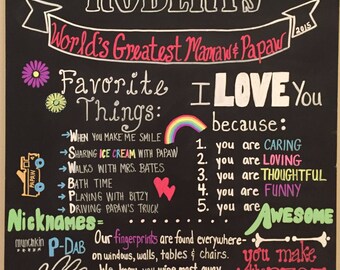 ROBERTS
World's Greatest Mamaw & Papaw
2015
Favorite
Things:
WHEN YOU MAKE ME SMILE
SHARING ICE CREAM WITH PAPAW
WALKS WITH MRS. BATES
BATH TIME
PLAYING WITH BITZY
DRIVING PAPAW'S TRUCK
PAPAW
I LOVE You
because:
1. you are CARING
2. you are LOVING
3. you are THOUGHTFUL
4. you are FUNNY
5. you are AWESOME
Nicknames-
munchkin P-DAB
Our fingerprints are found everywhere-
on windows, walls, tables & chairs.
you make